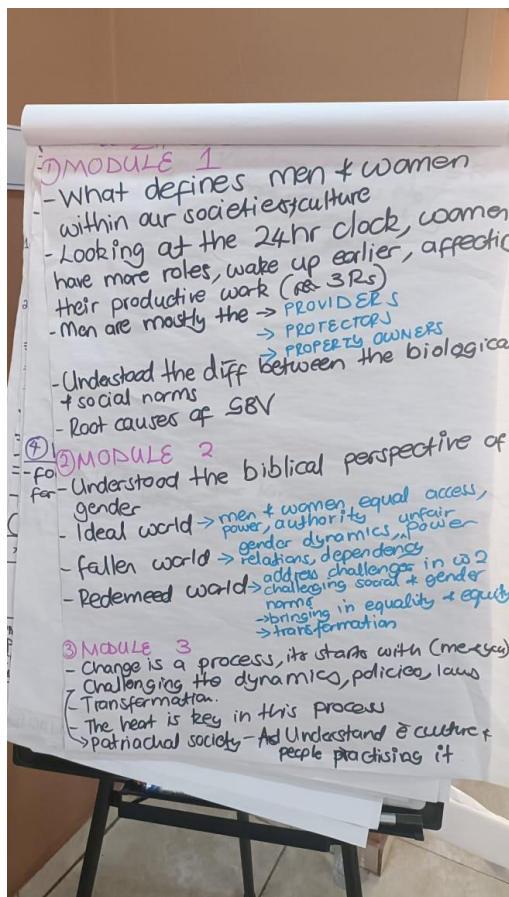 ① MODULE 1
- What defines men & women
within our societies/culture
- Looking at the 24hr clock, women
have more roles, wake up earlier, affectin
their productive work (3Rs)
- Men are mostly the → PROVIDERS
→ PROTECTORS
→ PROPERTY OWNERS
- Understood the diff between the biologica
& social norms
- Root causes of GBV
② MODULE 2
- Understood the biblical perspective of
gender
- Ideal world → men & women, equal access,
power, authority
- fallen world → gender dynamics, unfair power
relations, dependency
- Redemeed world → address challenges in w2
challenging social & gender
norms
→ bringing in equality & equity
→ transformation
③ MODULE 3
- Change is a process, its starts with (me & you)
- Challenging the dynamics, policies, laws
- Transformation.
- The heat is key in this process
→ patriachal society - Understand e culture &
people practising it
④
- fo
for